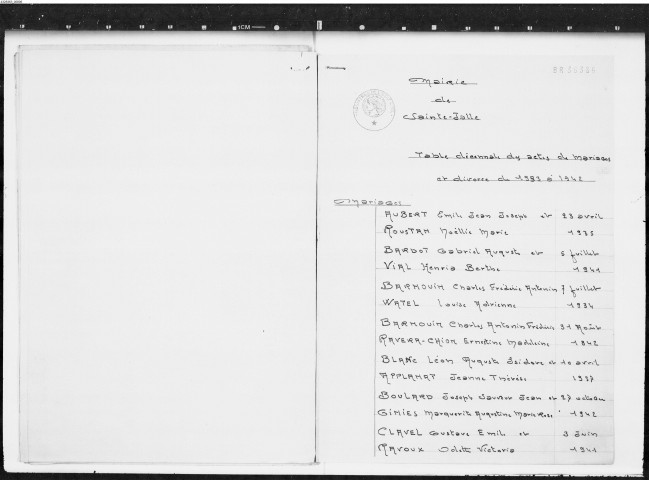 Mairie
de
Sainte-Jalle
Table décennale des actes de mariages
et divorce de 1933 à 1942
Mariages
AUBERT Emile Jean Joseph et 23 avril
ROUSTAN Noëllie Marie 1935
BARDOT Gabriel Auguste et 5 juillet
VIAL Henria Berthe 1941
BARNOUIN Charles Frédéric Antonin 7 juillet
WATEL Louise Adrienne 1934
BARNOUIN Charles Antonin Frédéric 31 Août
RAVERA-CHION Ernestine Madeleine 1942
BLANC Léon Auguste Isidore et 10 avril
APPLANAT Jeanne Thérèse 1937
BOULARD Joseph Sauveur Jean et 27 octobre
GINIES Marguerite Augustine Marie Rose 1942
CLAVEL Gustave Emile et 3 Juin
RAVOUX Odette Victoria 1941